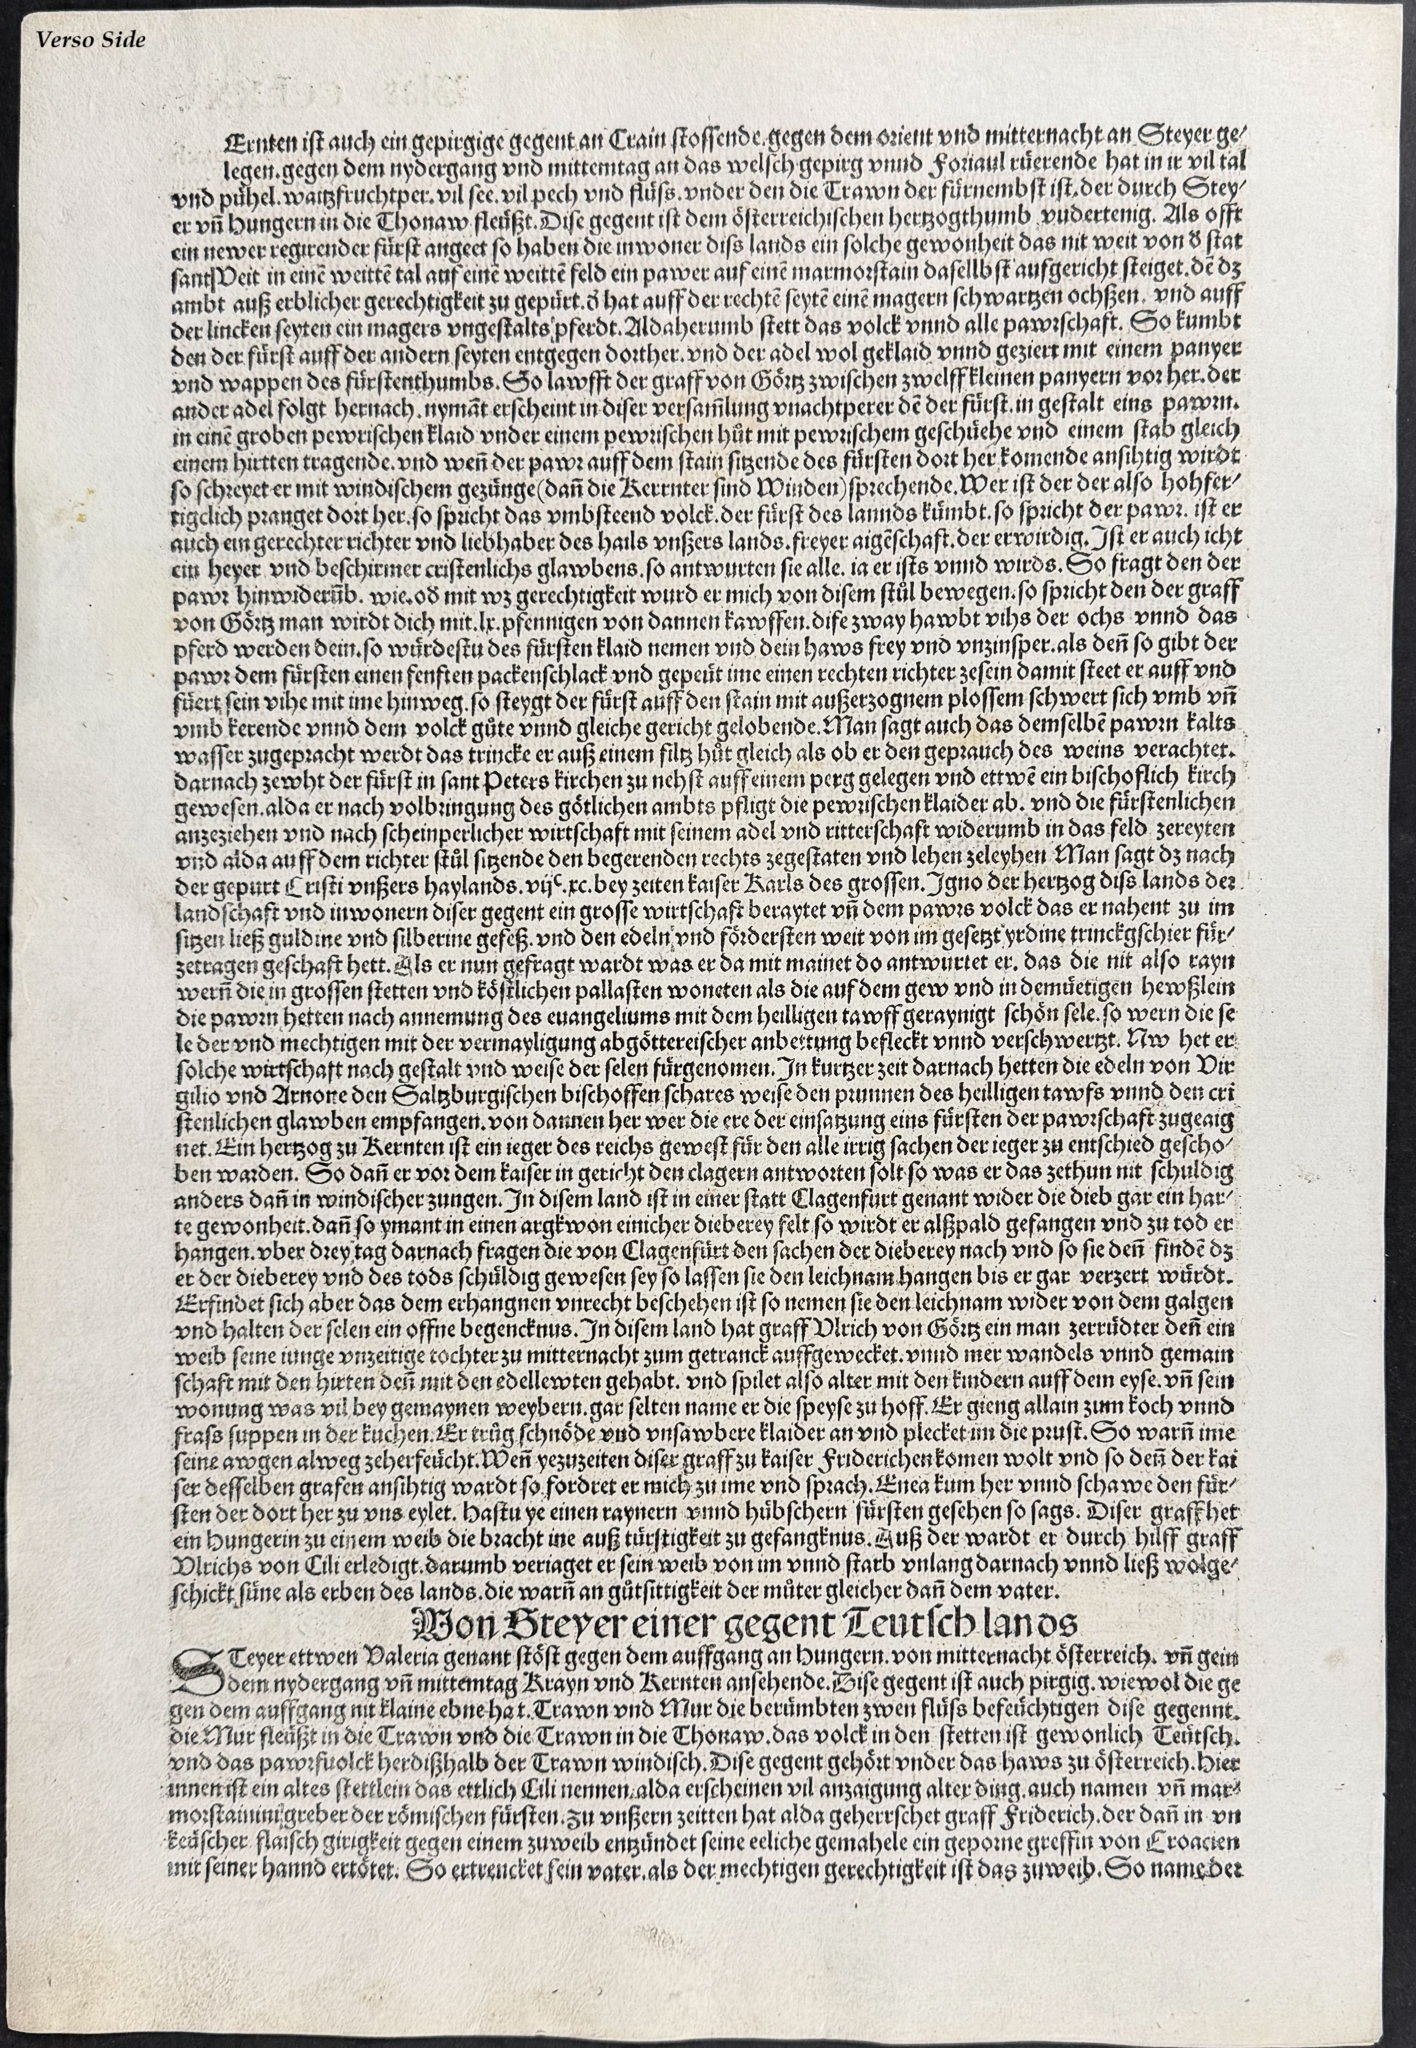 Verso Side
Ernten ist auch ein gepirgige gegent an Crain stossende.gegen dem orient vnd mitternacht an Steyer ge/
legen.gegen dem nydergang vnd mittemtag an das welsch gepirg vnnd Foriaul rüerende hat in ir vil tal
vnd pühel. waitzfruchtper. vil see. vil pech vnd flüss. vnder den die Trawn der fürnembst ist. der durch Stey/
er vñ Hungern in die Thonaw fleüßt. Dise gegent ist dem österreichischen hertzogthumb vndertenig. Als offt
ein newer regirender fürst angeet so haben die inwoner diss lands ein solche gewonheit das nit weit von d̄ stat
sant Veit in einē weittē tal auf einē weittē feld ein pawer auf einē marmorstain dasellbst aufgericht steiget. dē dz
ambt auß erblicher gerechtigkeit zu gepürt. d̄ hat auff der rechtē seytē einē magern schwartzen ochßen. vnd auff
der lincken seyten ein magers vngestalts pferdt. Aldaherumb stett das volck vnnd alle pawrschaft. So kumbt
den der fürst auff der andern seyten entgegen dorther. vnd der adel wol geklaid vnnd geziert mit einem panyer
vnd wappen des fürstenthumbs. So lawfft der graff von Görtz zwischen zwelff kleinen panyern vor her. der
ander adel folgt hernach. nymāt erscheint in diser versam̄lung vnachtperer dē der fürst. in gestalt eins pawrn.
in einē groben pewrischen klaid vnder einem pewrischen hůt mit pewrischem geschüehe vnd einem stab gleich
einem hirtten tragende. vnd weñ der pawr auff dem stain sitzende des fürsten dort her komende ansihtig wirdt
so schreyet er mit windischem gezünge (dañ die Kerrnter sind Winden) sprechende. Wer ist der der also hohfer/
tigclich pranget dort her. so spricht das vmbsteend volck. der fürst des lannds kümbt. so spricht der pawr. ist er
auch ein gerechter richter vnd liebhaber des hails vnßers lands. freyer aigēschaft. der erwirdig. Ist er auch icht
ein heyer vnd beschirmer cristenlichs glawbens. so antwurten sie alle. ia er ists vnnd wirds. So fragt den der
pawr hinwiderūb. wie. od̄ mit wz gerechtigkeit wurd er mich von disem stůl bewegen. so spricht den der graff
von Görtz man wirdt dich mit. lx. pfennigen von dannen kawffen. dise zway hawbt vihs der ochs vnnd das
pferd werden dein. so würdestu des fürsten klaid nemen vnd dein haws frey vnd vnzinsper. als deñ so gibt der
pawr dem fürsten einen senften packenschlack vnd gepeüt ime einen rechten richter zesein damit steet er auff vnd
füert sein vihe mit ime hinweg. so steygt der fürst auff den stain mit außerzognem plossem schwert sich vmb vñ
vmb kerende vnnd dem volck gůte vnnd gleiche gericht gelobende. Man sagt auch das demselbē pawrn kalts
wasser zugepracht werdt das trincke er auß einem filtz hůt gleich als ob er den geprauch des weins verachtet.
darnach zewht der fürst in sant Peters kirchen zu nehst auff einem perg gelegen vnd ettwē ein bischoflich kirch
gewesen. alda er nach volbringung des götlichen ambts pfligt die pewrischen klaider ab. vnd die fürstenlichen
anzeziehen vnd nach scheinperlicher wirtschaft mit seinem adel vnd ritterschaft widerumb in das feld zereyten
vnd alda auff dem richter stůl sitzende den begerenden rechts zegestaten vnd lehen zeleyhen Man sagt dz nach
der gepurt Cristi vnßers haylands. vijᶜ. xc. bey zeiten kaiser Karls des grossen. Igno der hertzog diss lands der
landschaft vnd inwonern diser gegent ein grosse wirtschaft beraytet vñ dem pawrs volck das er nahent zu im
sitzen ließ guldine vnd silberine gefeß. vnd den edeln vnd fördersten weit von im gesetzt yrdine trinckgschier für/
zetragen geschaft hett. Als er nun gefragt wardt was er da mit mainet do antwurtet er. das die nit also rayn
werñ die in grossen stetten vnd köstlichen pallasten woneten als die auf dem gew vnd in demüetigen hewßlein
die pawrn hetten nach annemung des euangeliums mit dem heilligen tawff geraynigt schön sele. so wern die se
le der vnd mechtigen mit der vermayligung abgöttereischer anbettung befleckt vnnd verschwertzt. Nw het er
solche wirtschaft nach gestalt vnd weise der selen fürgenomen. In kurtzer zeit darnach hetten die edeln von Vir
gilio vnd Arnone den Saltzburgischen bischoffen schares weise den prunnen des heilligen tawfs vnnd den cri
stenlichen glawben empfangen. von dannen her wer die ere der einsatzung eins fürsten der pawrschaft zugeaig
net. Ein hertzog zu Kernten ist ein ieger des reichs gewest für den alle irrig sachen der ieger zu entschied gescho/
ben warden. So dañ er vor dem kaiser in gericht den clagern antworten solt so was er das zethun nit schuldig
anders dañ in windischer zungen. In disem land ist in einer statt Clagenfurt genant wider die dieb gar ein har/
te gewonheit. dañ so ymant in einen argkwon einicher dieberey felt so wirdt er alßpald gefangen vnd zu tod er
hangen. vber drey tag darnach fragen die von Clagenfürt den sachen der dieberey nach vnd so sie deñ findē dz
er der dieberey vnd des tods schüldig gewesen sey so lassen sie den leichnam hangen bis er gar verzert würdt.
Erfindet sich aber das dem erhangnen vnrecht beschehen ist so nemen sie den leichnam wider von dem galgen
vnd halten der selen ein offne begencknus. In disem land hat graff Vlrich von Görtz ein man zerrüdter deñ ein
weib seine iunge vnzeitige tochter zu mitternacht zum getranck auffgewecket. vnnd mer wandels vnnd gemain
schaft mit den hirten deñ mit den edellewten gehabt. vnd spilet also alter mit den kindern auff dem eyse. vñ sein
wonung was vil bey gemaynen weybern. gar selten name er die speyse zu hoff. Er gieng allain zum koch vnnd
frass suppen in der kuchen. Er trůg schnöde vnd vnsawbere klaider an vnd plecket im die prust. So warñ ime
seine awgen alweg zeherfeücht. Weñ yezuzeiten diser graff zu kaiser Friderichen komen wolt vnd so deñ der kai
ser desselben grafen ansihtig wardt so fordret er mich zu ime vnd sprach. Enea kum her vnnd schawe den für/
sten der dort her zu vns eylet. Hastu ye einen raynern vnnd hübschern fürsten gesehen so sags. Diser graff het
ein Hungerin zu einem weib die bracht ine auß türstigkeit zu gefangknus. Auß der wardt er durch hilff graff
Vlrichs von Cili erledigt. darumb veriaget er sein weib von im vnnd starb vnlang darnach vnnd ließ wolge/
schickt süne als erben des lands. die warñ an gůtsittigkeit der můter gleicher dañ dem vater.
Von Steyer einer gegent Teutsch lands
STeyer ettwen Valeria genant stöst gegen dem auffgang an Hungern. von mitternacht österreich. vñ gein
dem nydergang vñ mittemtag Krayn vnd Kernten ansehende. Dise gegent ist auch pirgig. wiewol die ge
gen dem auffgang nit klaine ebne hat. Trawn vnd Mur die berümbten zwen flüss befeüchtigen dise gegennt.
die Mur fleüßt in die Trawn vnd die Trawn in die Thonaw. das volck in den stetten ist gewonlich Teütsch.
vnd das pawrfuolck herdißhalb der Trawn windisch. Dise gegent gehört vnder das haws zu österreich. Hier
innen ist ein altes stettlein das ettlich Cili nennen. alda erscheinen vil anzaigung alter ding. auch namen vñ mar/
morstainini greber der römischen fürsten. zu vnßern zeitten hat alda geherrschet graff Friderich. der dañ in vn
keüscher flaisch girigkeit gegen einem zuweib entzündet seine eeliche gemahele ein geporne greffin von Croacien
mit seiner hannd ertötet. So ertrencket sein vater. als der mechtigen gerechtigkeit ist das zuweib. So name der